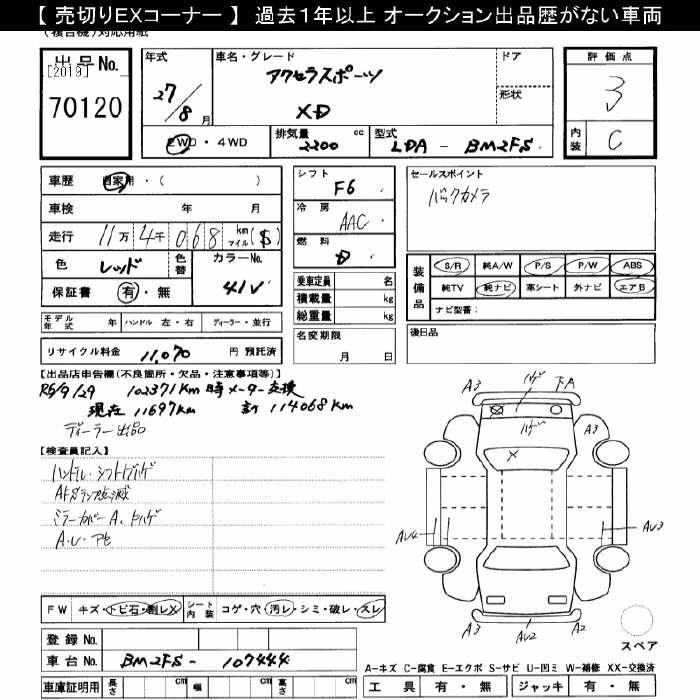 【 売切りEXコーナー 】 過去１年以上 オークション出品歴がない車両
出品No.
[2019]
70120
年式
27/8月
車名・グレード
アクセラスポーツ
XD
ドア
形状
評価点
3
内装
C
2WD・4WD
排気量
2200 cc
型式
LDA - BM2FS
車歴 自家用・( )
車検 年 月
走行 11万4千068 km マイル ($)
色 レッド
色替
カラーNo.
41V
保証書 有・無
モデル年式 年
ハンドル 左・右
ディーラー・並行
リサイクル料金 11,070 円 預託済
シフト
F6
冷房
AAC
燃料
D
乗車定員 名
積載量 kg
総重量 kg
名変期限
月 日
セールスポイント
バックカメラ
装備品
S/R 純A/W P/S P/W ABS
純TV 純ナビ 革シート 外ナビ エアB
ナビ型番：
後日品
【出品店申告欄(不良箇所・欠品・注意事項等)】
R6/9/29 102371km時メーター交換
現在 11697km 計 114068km
ディーラー出品
【検査員記入】
ハンドル・シフトノブハゲ
ミラーカバーA、トハゲ
A・U・アセ
FW キズ・トビ石・割レX
シート内装 コゲ・穴・汚レ・シミ・破レ・スレ
登録 No.
車台 No. BM2FS - 107444
車庫証明用 長さ cm 幅 cm 高さ cm
A3
ハゲ
下A
ハゲ
A3
X
AU4
AU3
A3
AU2
A2
スペア
A-キズ C-腐食 E-エクボ S-サビ U-凹ミ W-補修 XX-交換済
工具 有・無 ジャッキ 有・無